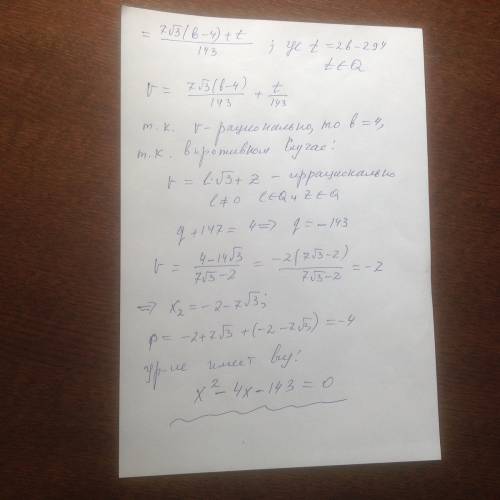 = 7√3(b-4)+t / 143 ; где t = 2b-294
t∈Q
r = 7√3(b-4)/143 + t/143
т.к. r - рационально, то b = 4,
т.к. в противном случае:
r = l·√3 + z - иррационально
l≠0 l∈Q и z∈Q
q + 147 = 4 => q = -143
r = 4-14√3 / 7√3-2 = -2(7√3-2) / 7√3-2 = -2
=> x₂ = -2-7√3;
p = -2+2√3 + (-2-2√3) = -4
Ур-ие имеет вид:
x² - 4x - 143 = 0